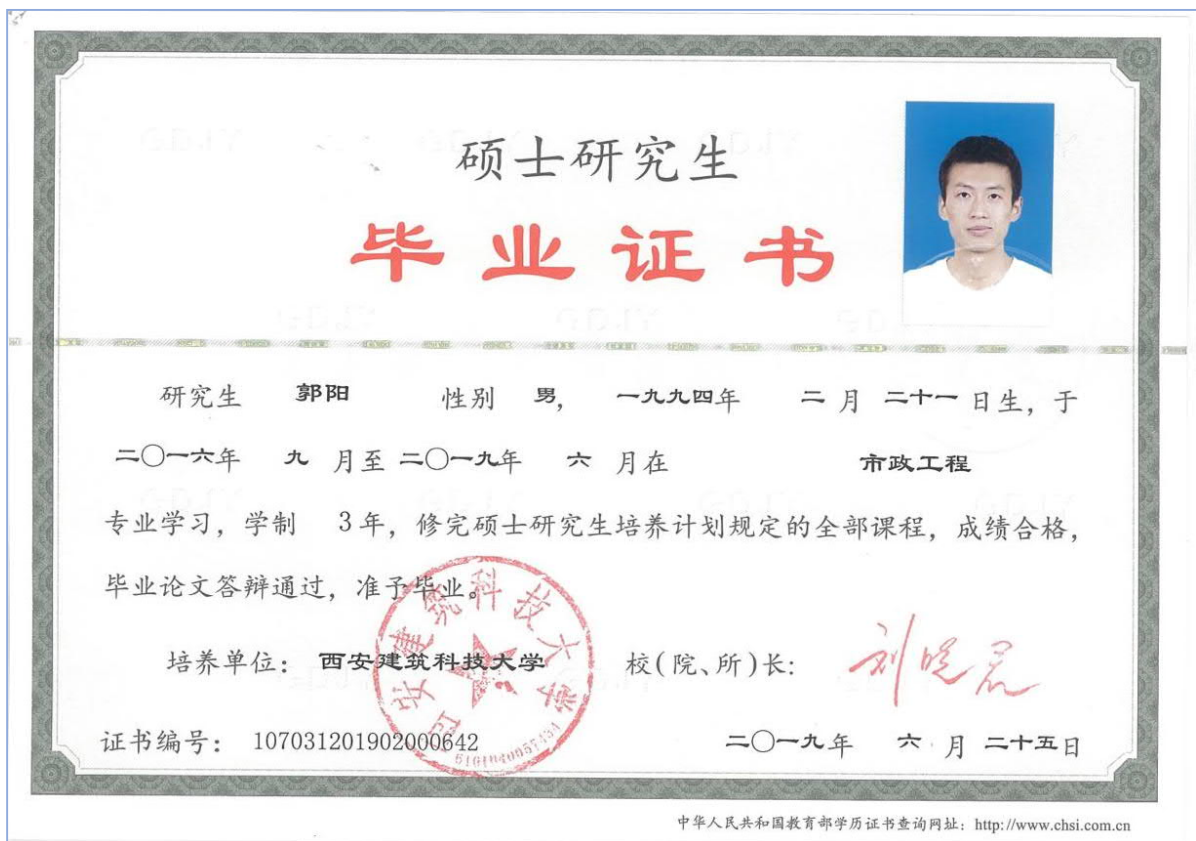 硕士研究生
毕业证书
研究生 郭阳 性别 男, 一九九四年 二 月 二十一 日生, 于
二〇一六年 九 月至 二〇一九年 六 月在 市政工程
专业学习, 学制 3 年, 修完硕士研究生培养计划规定的全部课程, 成绩合格,
毕业论文答辩通过, 准予毕业。
培养单位: 西安建筑科技大学 校(院、所)长: 刘晓君
西安建筑科技大学
证书编号: 107031201902000642 二〇一九年 六 月 二十五日
中华人民共和国教育部学历证书查询网址: http://www.chsi.com.cn